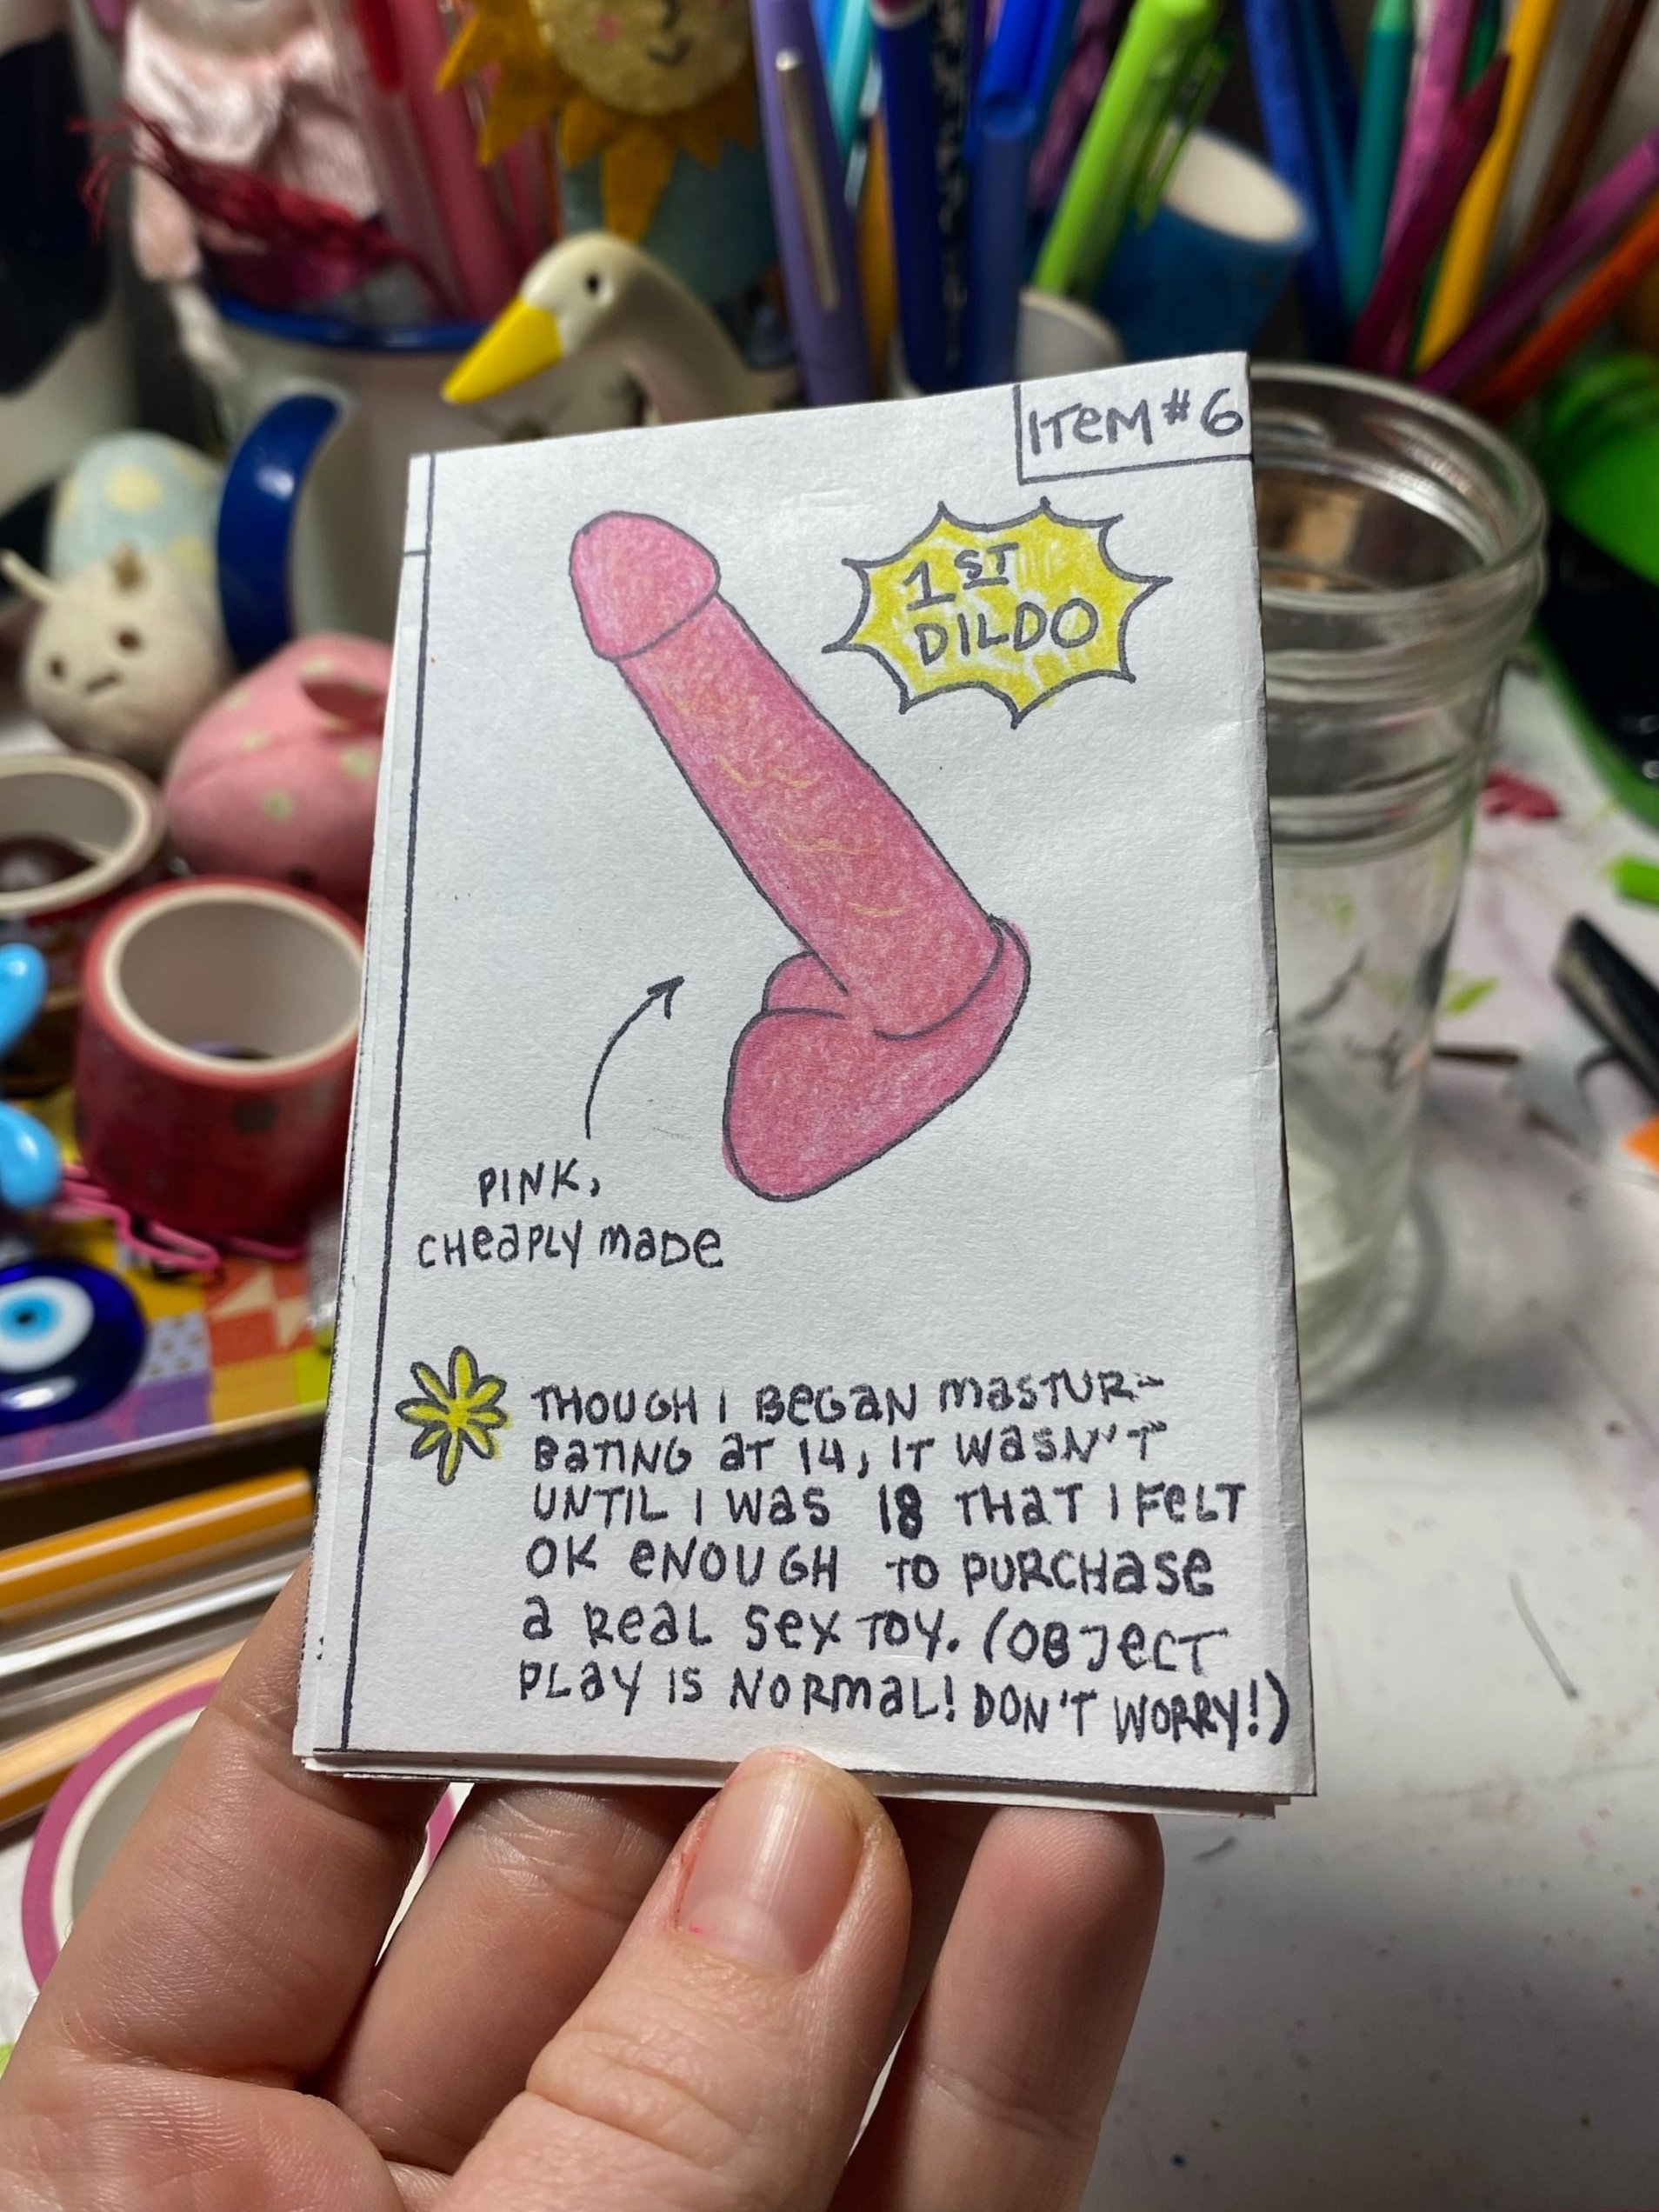 ITEM #6
1ST
DILDO
PINK,
CHEAPLY MADE
THOUGH I BEGAN MASTUR-
BATING AT 14, IT WASN'T
UNTIL I WAS 18 THAT I FELT
OK ENOUGH TO PURCHASE
A REAL SEX TOY. (OBJECT
PLAY IS NORMAL! DON'T WORRY!)